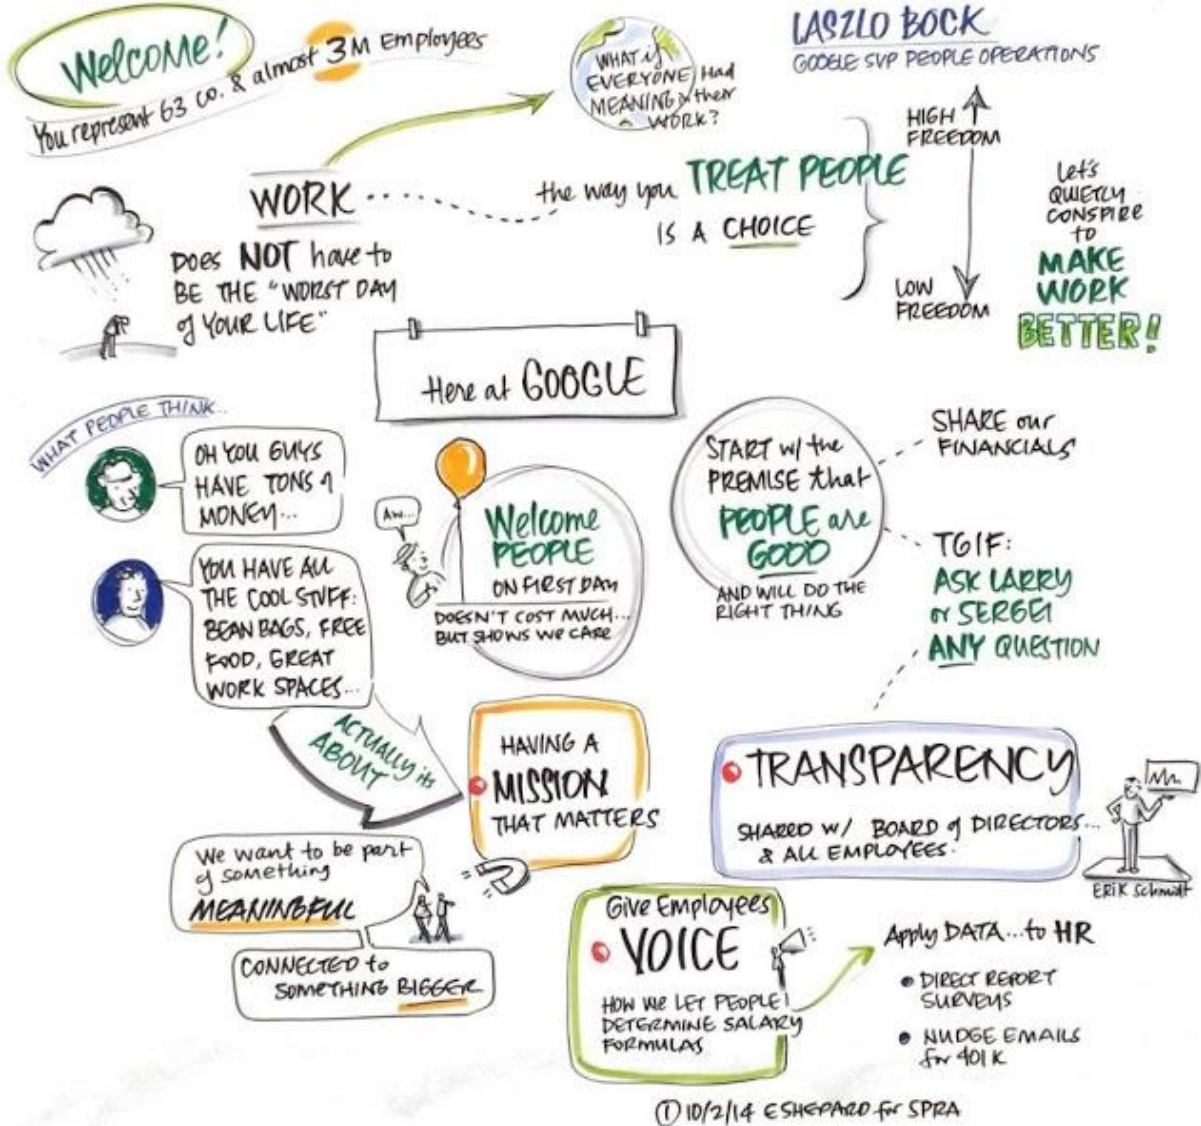 Welcome!
You represent 63 co. & almost 3M Employees
WHAT if
EVERYONE Had
MEANING in their
WORK?
LASZLO BOCK
GOOGLE SVP PEOPLE OPERATIONS
WORK
DOES NOT have to
BE THE "WORST DAY
of YOUR LIFE"
the way you TREAT PEOPLE
IS A CHOICE
HIGH
FREEDOM
LOW
FREEDOM
Let's
QUIETLY
CONSPIRE
to
MAKE
WORK
BETTER!
Here at GOOGLE
WHAT PEOPLE THINK..
OH YOU GUYS
HAVE TONS of
MONEY...
YOU HAVE ALL
THE COOL STUFF:
BEAN BAGS, FREE
FOOD, GREAT
WORK SPACES...
AW...
Welcome
PEOPLE
ON FIRST DAY
DOESN'T COST MUCH...
BUT SHOWS WE CARE
START w/ the
PREMISE that
PEOPLE are
GOOD
AND WILL DO THE
RIGHT THING
SHARE our
FINANCIALS
TGIF:
ASK LARRY
or SERGEI
ANY QUESTION
ACTUALLY its
ABOUT
HAVING A
MISSION
THAT MATTERS
TRANSPARENCY
SHARED w/ BOARD of DIRECTORS...
& ALL EMPLOYEES.
ERIK Schmidt
We want to be part
of something
MEANINGFUL
CONNECTED to
SOMETHING BIGGER
Give Employees
VOICE
HOW WE LET PEOPLE
DETERMINE SALARY
FORMULAS
Apply DATA...to HR
DIRECT REPORT
SURVEYS
NUDGE EMAILS
for 401K
① 10/2/14 ESHEPARD for SPRA